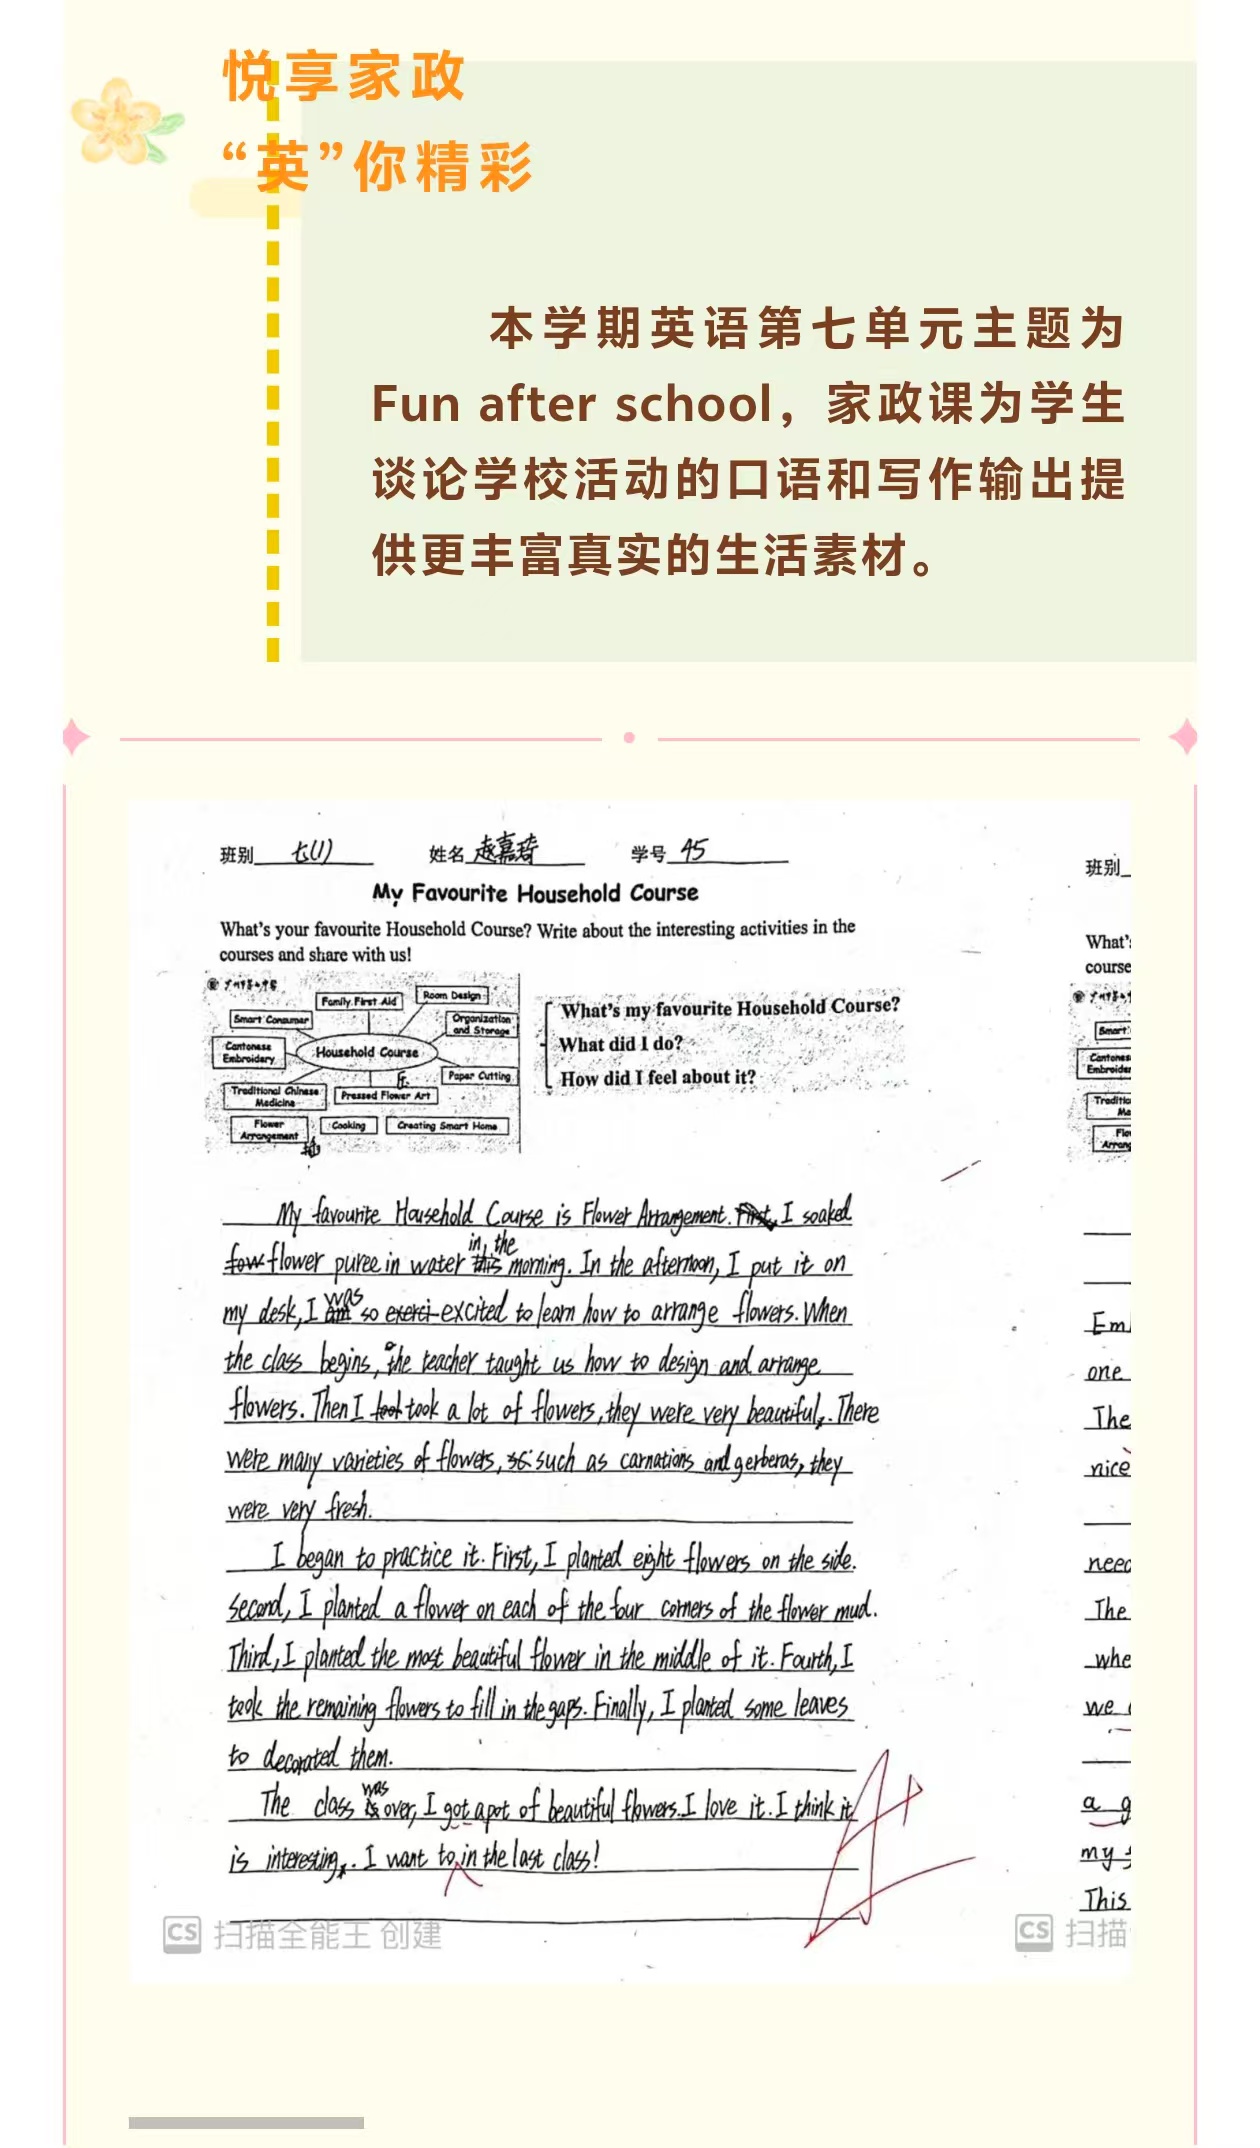 悦享家政
“英”你精彩
本学期英语第七单元主题为
Fun after school，家政课为学生
谈论学校活动的口语和写作输出提
供更丰富真实的生活素材。
班别 七(1) 姓名 赵嘉琦 学号 45
My Favourite Household Course
What's your favourite Household Course? Write about the interesting activities in the
courses and share with us!
Family First Aid
Room Design
Smart Consumer
Organization
and Storage
Cantonese
Embroidery
Household Course
Paper Cutting
Traditional Chinese
Medicine
Pressed Flower Art
Flower
Arrangement
Cooking
Creating Smart Home
What's my favourite Household Course?
What did I do?
How did I feel about it?
My favourite Household Course is Flower Arrangement. First, I soaked
flower puree in water in the morning. In the afternoon, I put it on
my desk, I was so excited to learn how to arrange flowers. When
the class begins, the teacher taught us how to design and arrange
flowers. Then I took a lot of flowers, they were very beautiful. There
were many varieties of flowers, such as carnations and gerberas, they
were very fresh.
I began to practice it. First, I planted eight flowers on the side.
Second, I planted a flower on each of the four corners of the flower mud.
Third, I planted the most beautiful flower in the middle of it. Fourth, I
took the remaining flowers to fill in the gaps. Finally, I planted some leaves
to decorated them.
The class was over, I got a pot of beautiful flowers. I love it. I think it
is interesting. I want to in the last class!
A+
CS 扫描全能王 创建
班别
What's
course
Smart
Cantones
Embroider
Traditio
Me
Flo
Arrang
Em
one
The
nice
need
The
whe
we
a g
my
This
CS 扫描